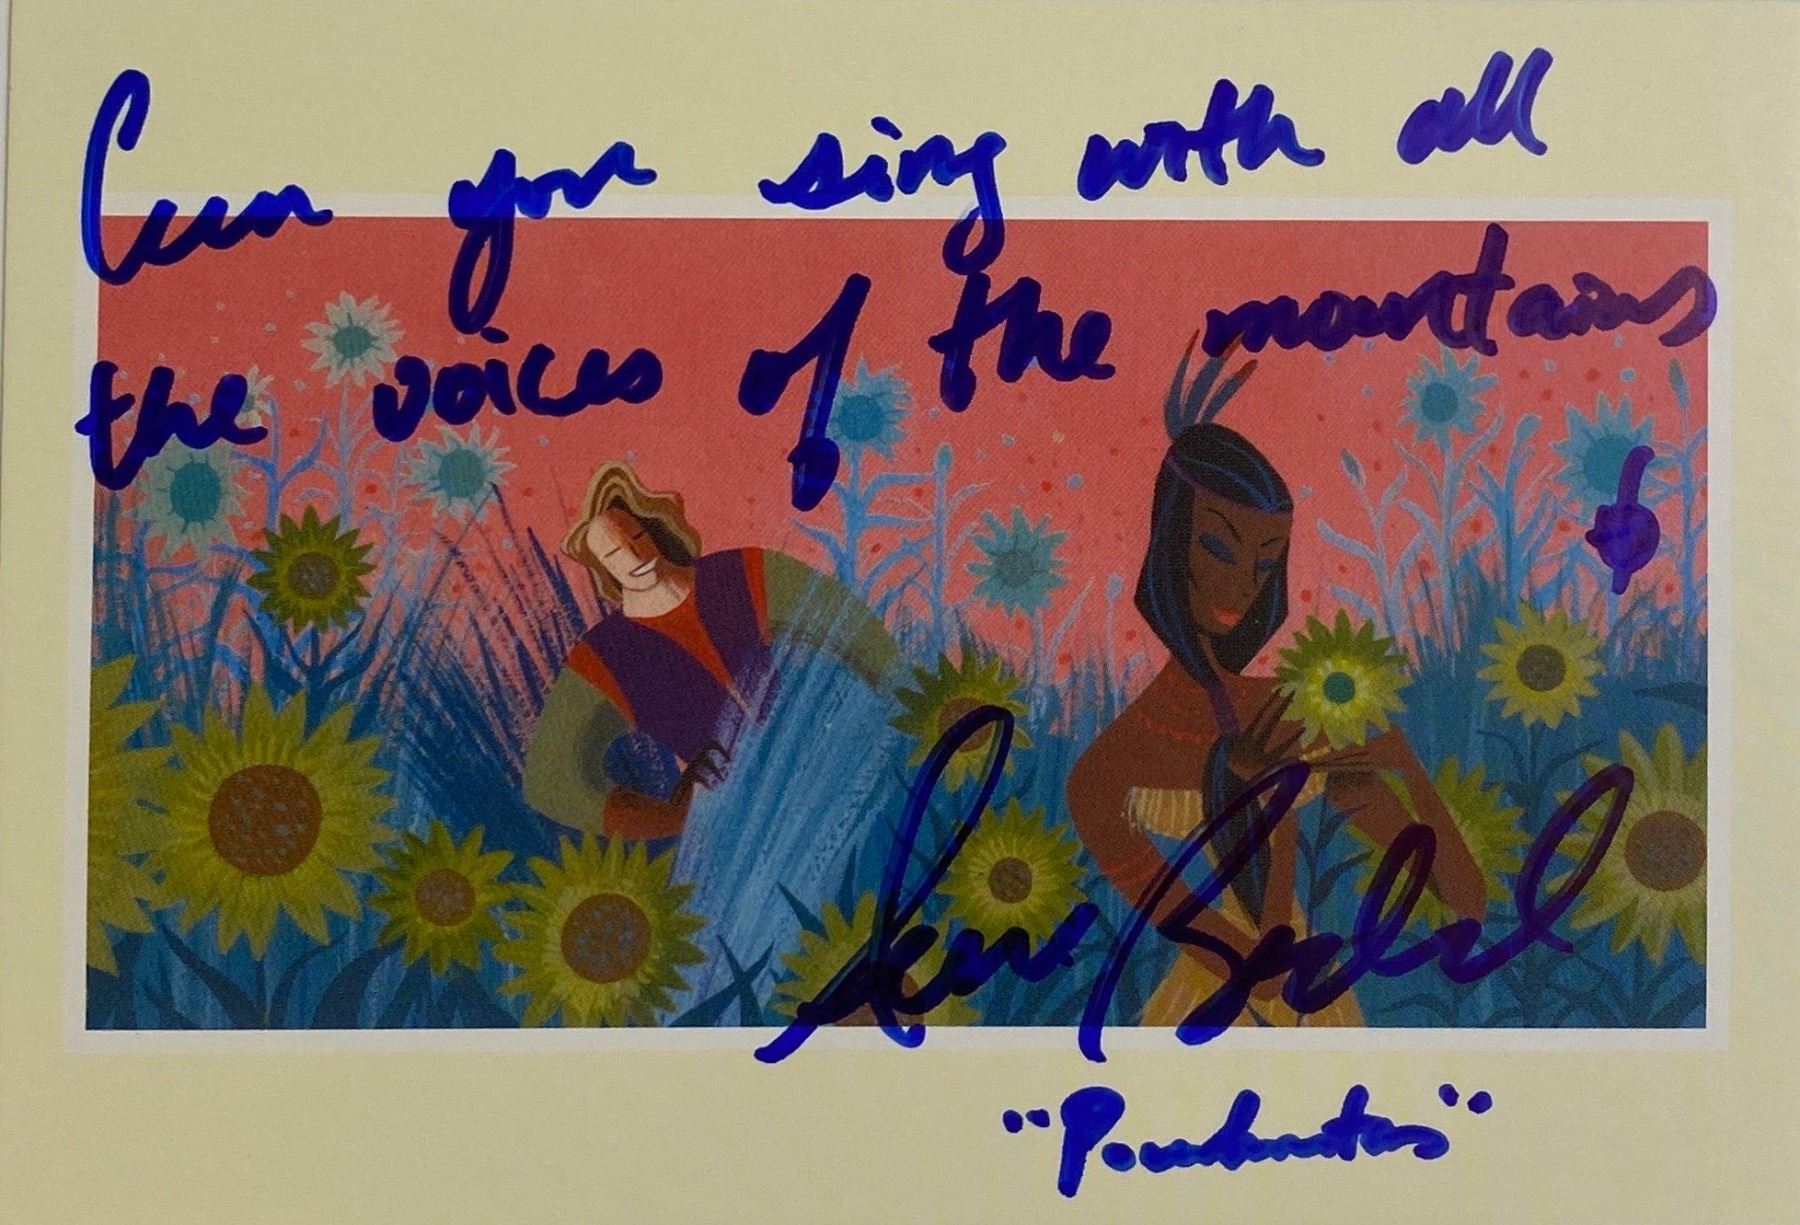 Can you sing with all
the voices of the mountains?
Irene Bedard
"Pocahontas"